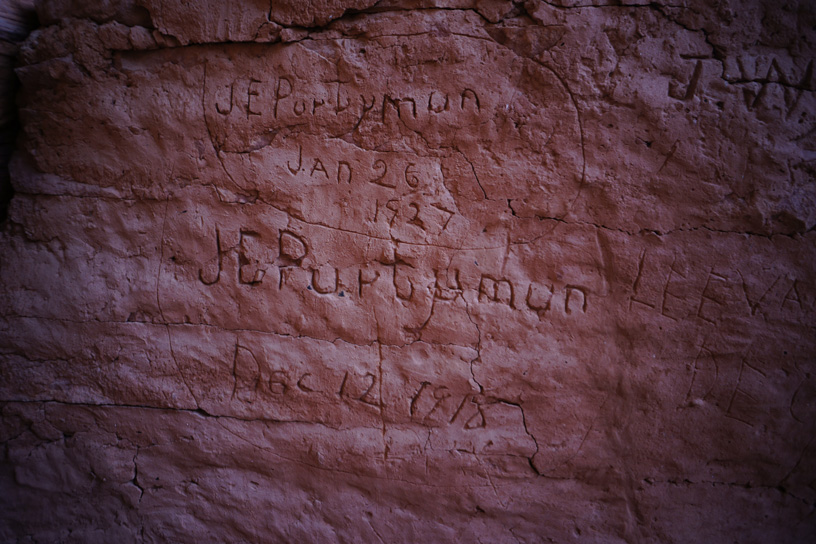 JE Purtymun
Jan 26
1927
JE Purtymun
Dec 12 1918
J. W
LEE VA
DEC